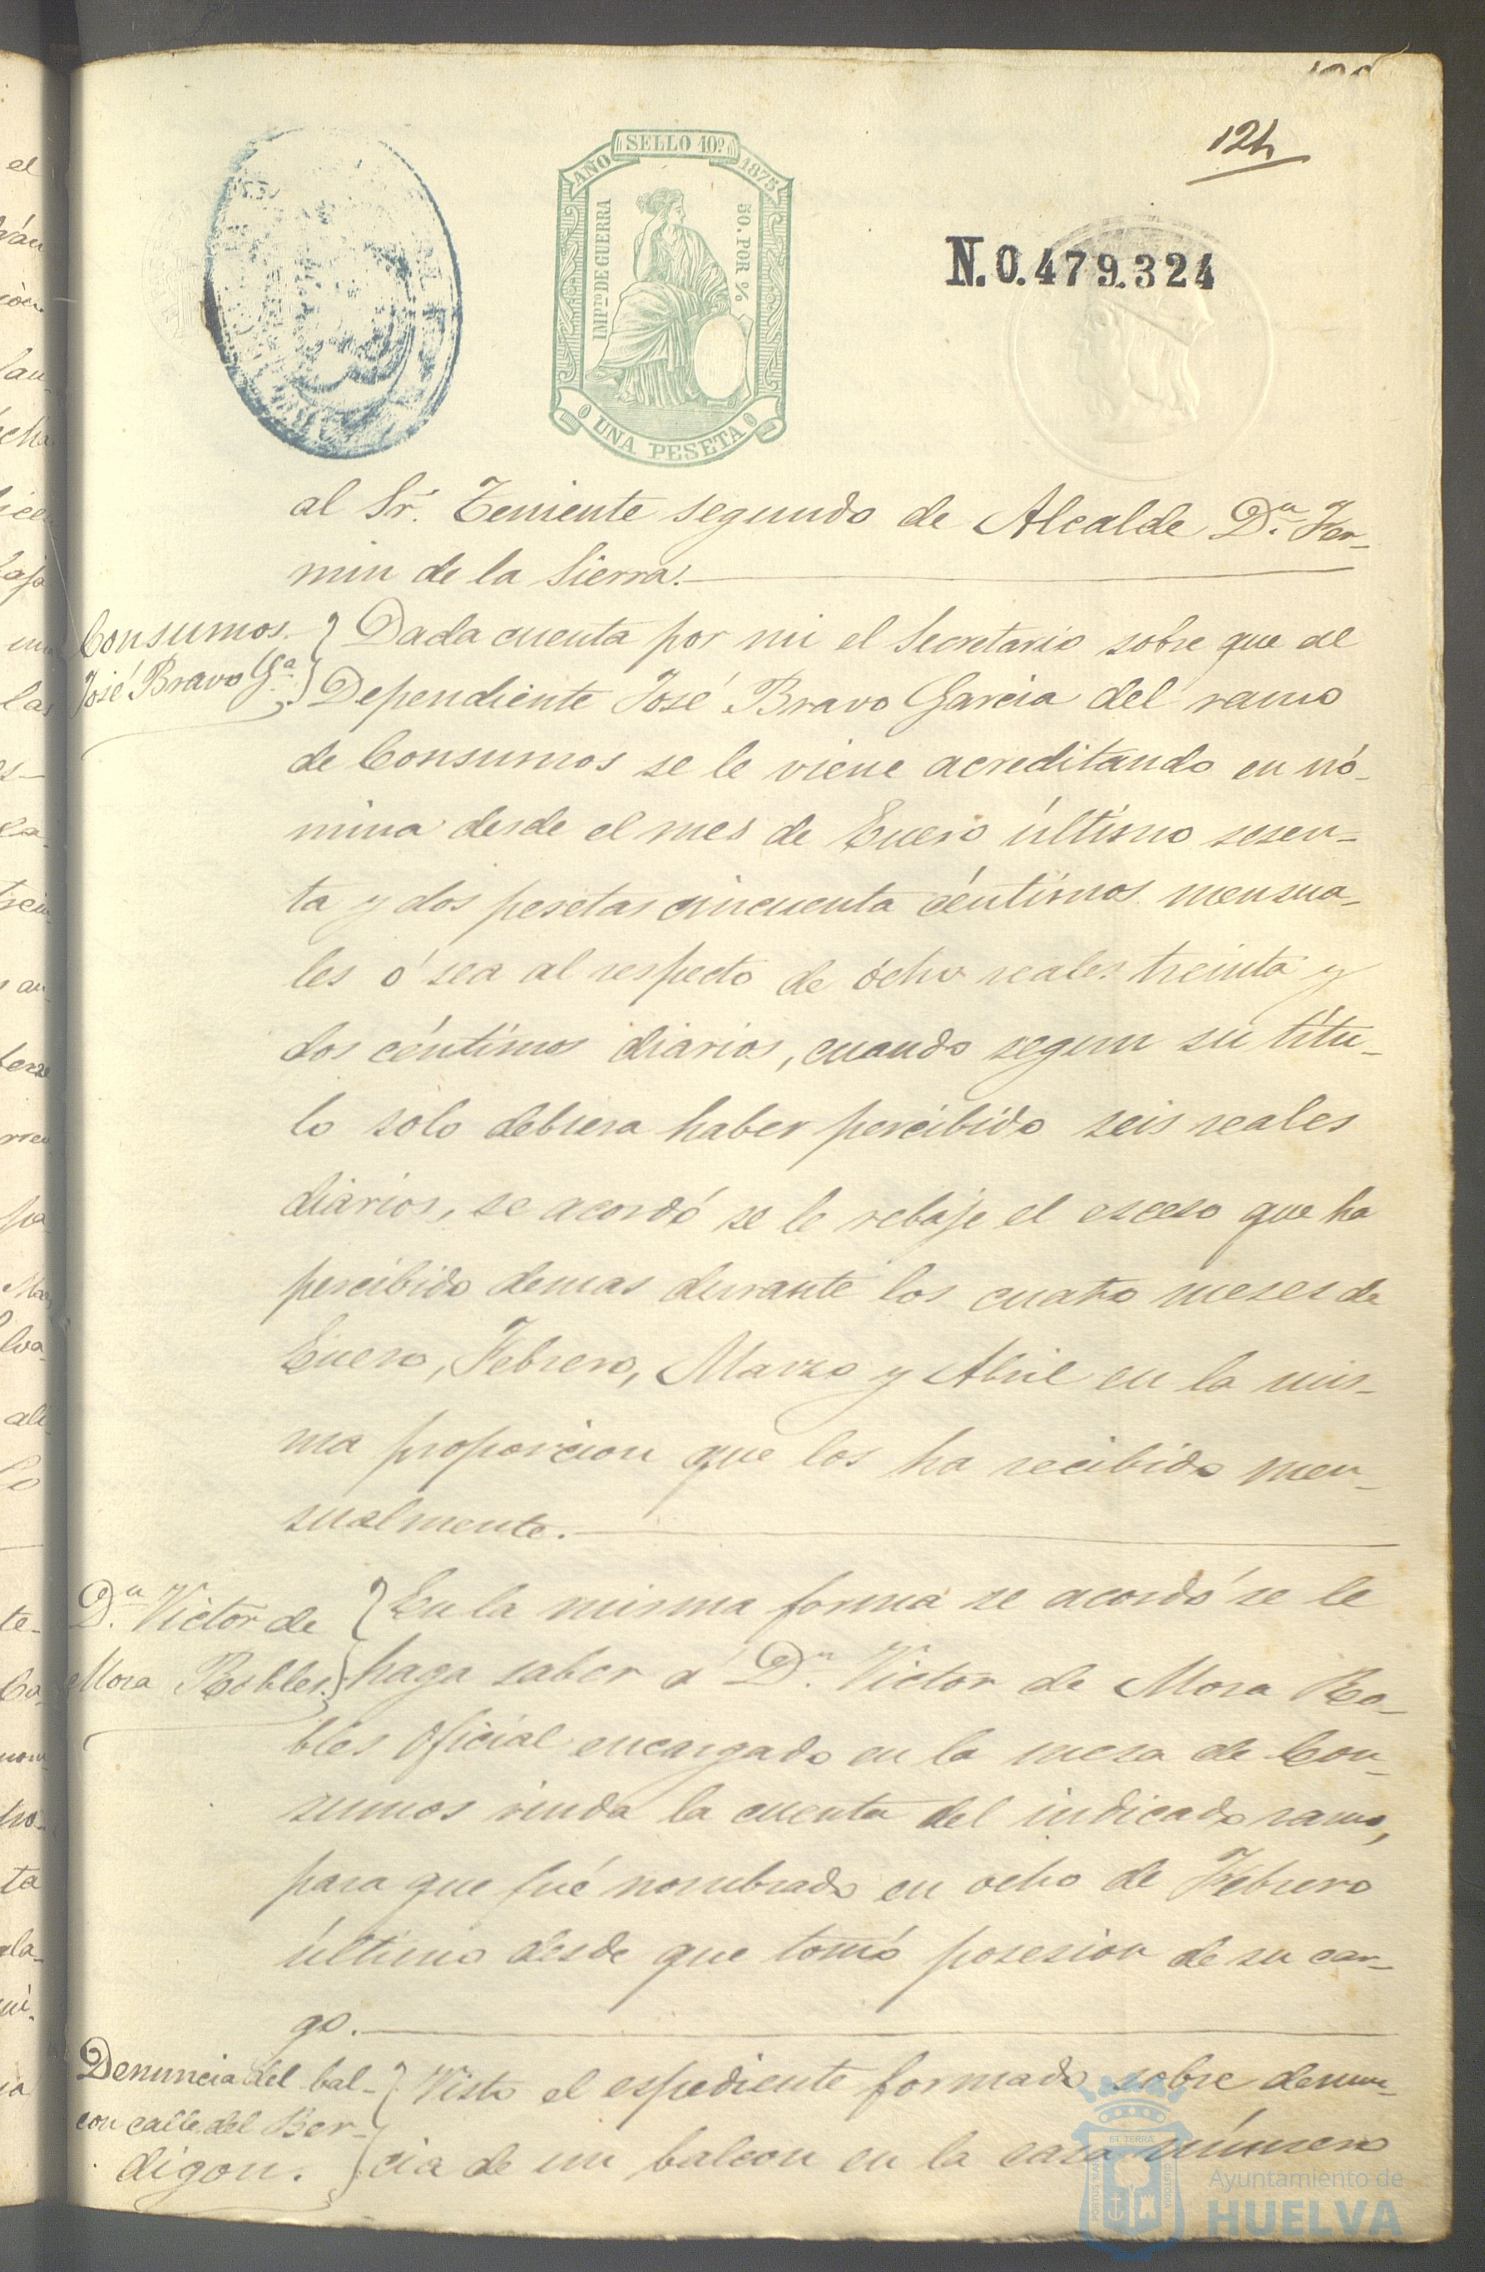 124
AÑO SELLO 10º 1875
IMPTO DE GUERRA
50 POR %
UNA PESETA
N.0.479.324
al Sr. Teniente segundo de Alcalde Dn. Fer-
min de la Sierra.
Consumos.
José Bravo Ga.
Dada cuenta por mi el Secretario sobre que al
Dependiente José Bravo Garcia del ramo
de Consumos se le viene acreditando en nó-
mina desde el mes de Enero último sesen-
ta y dos pesetas cincuenta céntimos mensua-
les ó sea al respecto de ocho reales treinta y
dos céntimos diarios, cuando segun su títu-
lo solo debiera haber percibido seis reales
diarios, se acordó se le rebaje el esceso que ha
percibido demas durante los cuatro meses de
Enero, Febrero, Marzo y Abril en la mis-
ma proporcion que los ha recibido men-
sualmente.
Dn. Victor de
Mora Robles.
En la misma forma se acordó se le
haga saber á Dn. Victor de Mora Ro-
bles Oficial encargado en la mesa de Con-
sumos rinda la cuenta del indicado ramo,
para que fué nombrado en ocho de Febrero
último desde que tomó posesion de su car-
go.
Denuncia del bal-
con calle del Ber-
digon.
Visto el espediente formado sobre denun-
cia de un balcon en la casa número
Ayuntamiento de
HUELVA